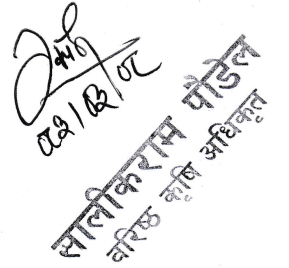 ०८३।०३।०८
सालीकराम पौडेल
वरिष्ठ कृषि अधिकृत